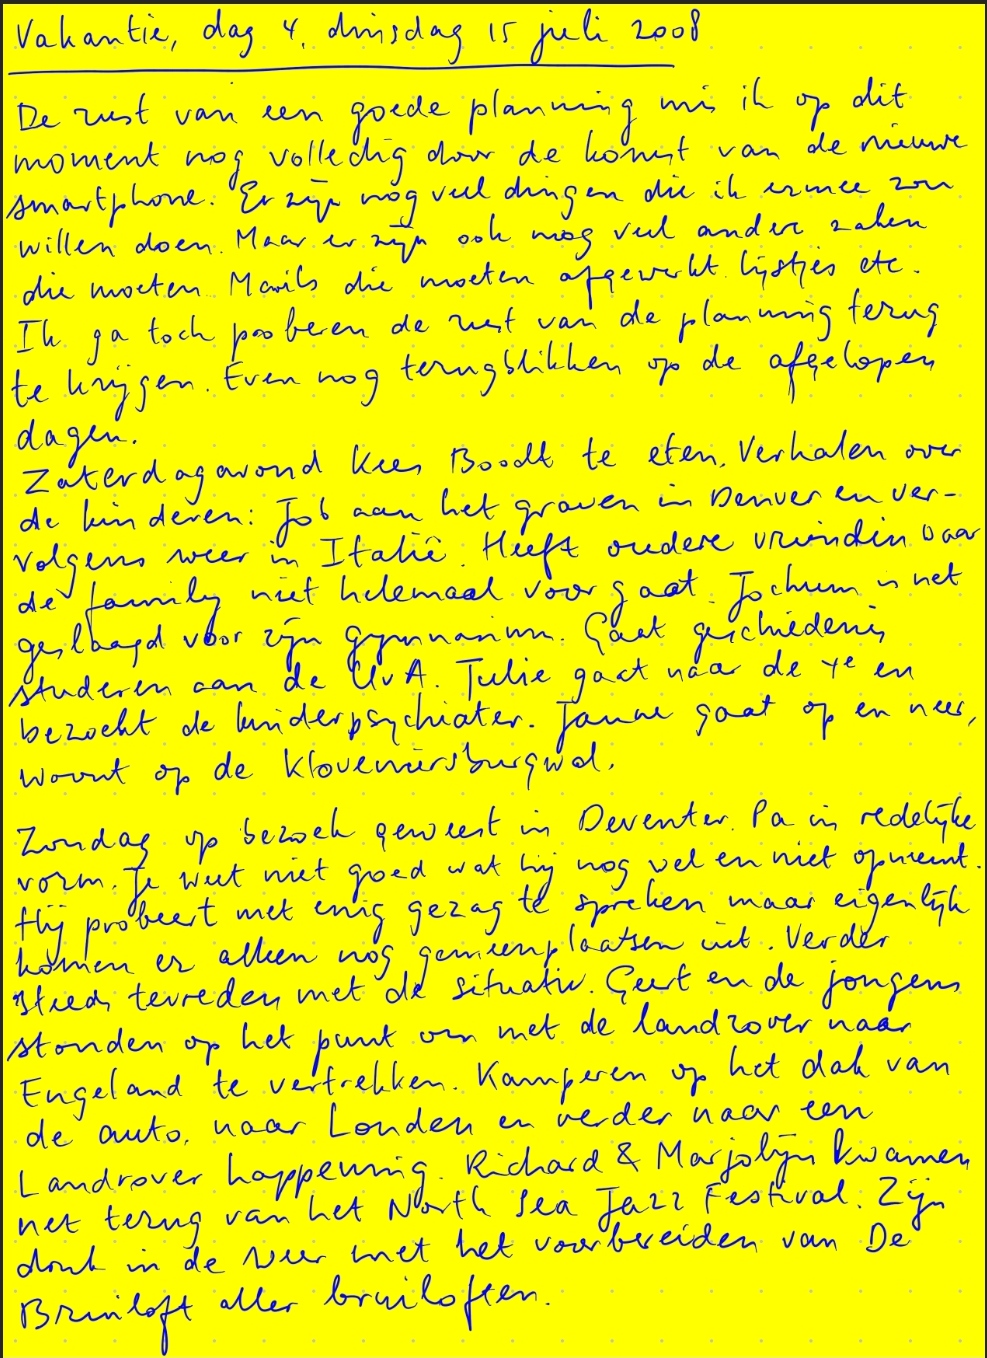 Vakantie, dag 4, dinsdag 15 juli 2008
De rust van een goede planning mis ik op dit
moment nog volledig door de komst van de nieuwe
smartphone. Er zijn nog veel dingen die ik ermee zou
willen doen. Maar er zijn ook nog veel andere zaken
die moeten. Mails die moeten afgewerkt. lijstjes etc.
Ik ga toch proberen de rust van de planning terug
te krijgen. Even nog terugblikken op de afgelopen
dagen.
Zaterdagavond Kees Boodt te eten. Verhalen over
de kinderen: Job aan het graven in Denver en ver-
volgens weer in Italië. Heeft oudere vriendin waar
de family niet helemaal voor gaat. Jochum is net
geslaagd voor zijn gymnasium. Gaat geschiedenis
studeren aan de UvA. Julie gaat naar de 4e en
bezoekt de kinderpsychiater. Janne gaat op en neer,
woont op de Kloveniersburgwal.
Zondag op bezoek geweest in Deventer. Pa in redelijke
vorm. Je weet niet goed wat hij nog wel en niet opneemt.
Hij probeert met enig gezag te spreken maar eigenlijk
komen er alleen nog gemeenplaatsen uit. Verder
steeds tevreden met de situatie. Geert en de jongens
stonden op het punt om met de landrover naar
Engeland te vertrekken. Kamperen op het dak van
de auto, naar Londen en verder naar een
Landrover happening. Richard & Marjolijn kwamen
net terug van het North Sea Jazz Festival. Zijn
druk in de weer met het voorbereiden van De
Bruiloft aller bruiloften.